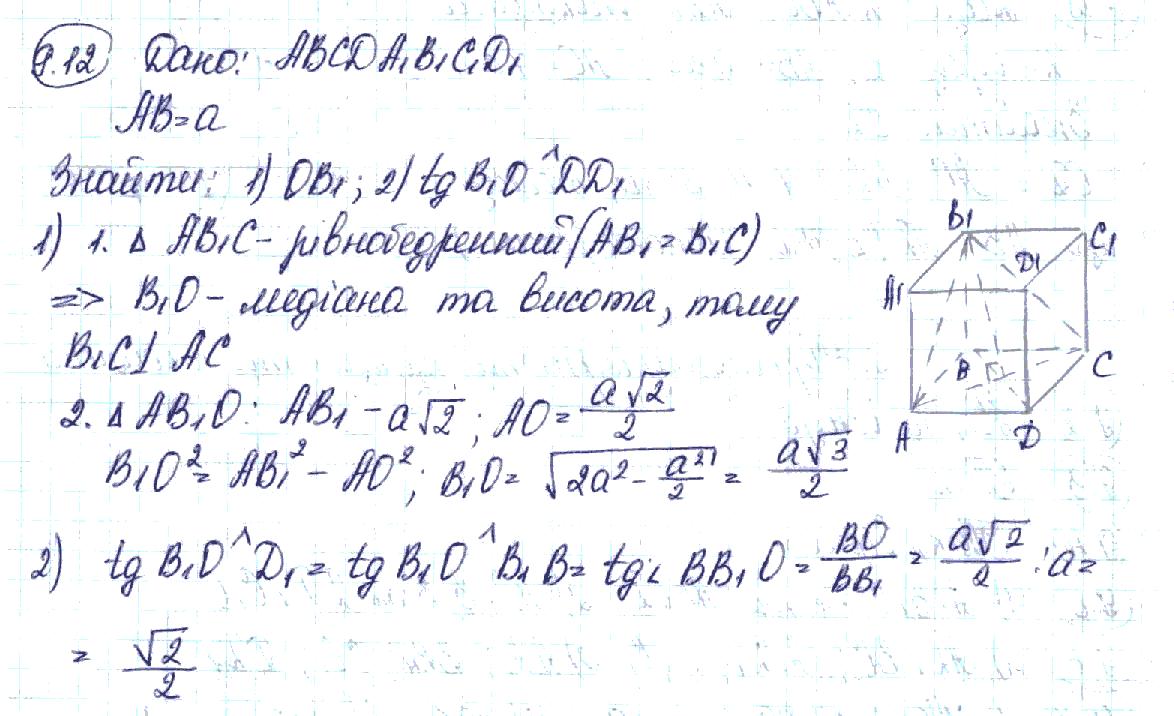 9.12 Дано: ABCDA₁B₁C₁D₁
AB=a
Знайти: 1) OB₁; 2) tg B₁O^DD₁
1) 1. Δ AB₁C - рівнобедренний (AB₁=B₁C)
=> B₁O - медіана та висота, тому
B₁C⊥AC
2. Δ AB₁O: AB₁ - a√2; AO = a√2/2
B₁O² = AB₁² - AO²; B₁O = √(2a² - a²/2) = a√3/2
2) tg B₁O^D₁ = tg B₁O^B₁B = tg< BB₁O = BO/BB₁ = a√2/2 : a =
= √2/2
B₁
C₁
D₁
A₁
B
C
A
D